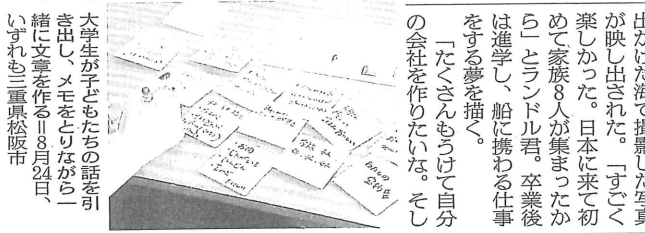 出かけた海で撮影した写真
が映し出された。「すごく
楽しかった。日本に来て初
めて家族8人が集まったか
ら」とランドル君。卒業後
は進学し、船に携わる仕事
をする夢を描く。
「たくさんもうけて自分
の会社を作りたいな。そし
大学生が子どもたちの話を引
き出し、メモをとりながら一
緒に文章を作る＝8月24日、
いずれも三重県松阪市